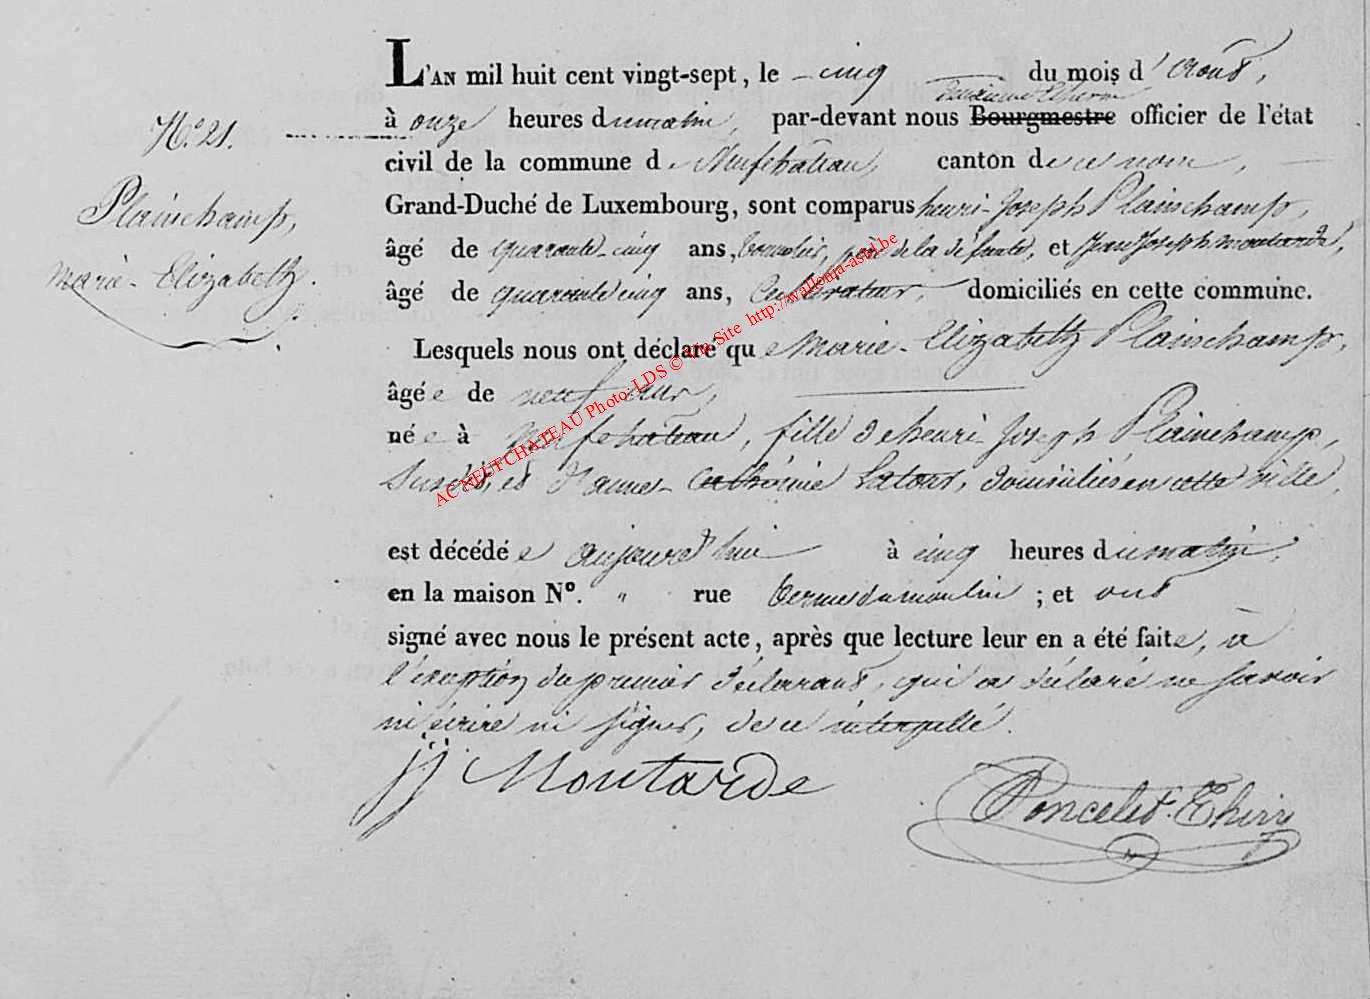 L'AN mil huit cent vingt-sept, le cinq du mois d'août,
deuxième Echevin
à onze heures du matin, par-devant nous Bourgmestre officier de l'état
N.° 21.
civil de la commune de Neufchâteau, canton de ce nom,
Plainchamp,
Grand-Duché de Luxembourg, sont comparus henri-Joseph Plainchamp,
âgé de quarante-cinq ans, père de la défunte, et Jean Joseph moutarde,
marie-Elizabeth.
âgé de quarante cinq ans, Cultivateur, domiciliés en cette commune.
Lesquels nous ont déclaré que marie-Elizabeth Plainchamp,
âgée de neuf ans,
née à Neufchateau, fille de henri-Joseph Plainchamp,
susdit, et Jeanne-Catherine Latour, domiciliés en cette ville,
est décédée aujourd'hui à cinq heures du matin,
en la maison N°. " rue du moulin ; et ont
signé avec nous le présent acte, après que lecture leur en a été faite, à
l'exception du premier déclarant, qui a déclaré ne savoir
ni écrire ni signer, de ce interpellé.
jj Moutarde
Poncelet-Thiry
AC NEUFCHATEAU Photo: LDS © Via Site http://wallonia-asbl.be